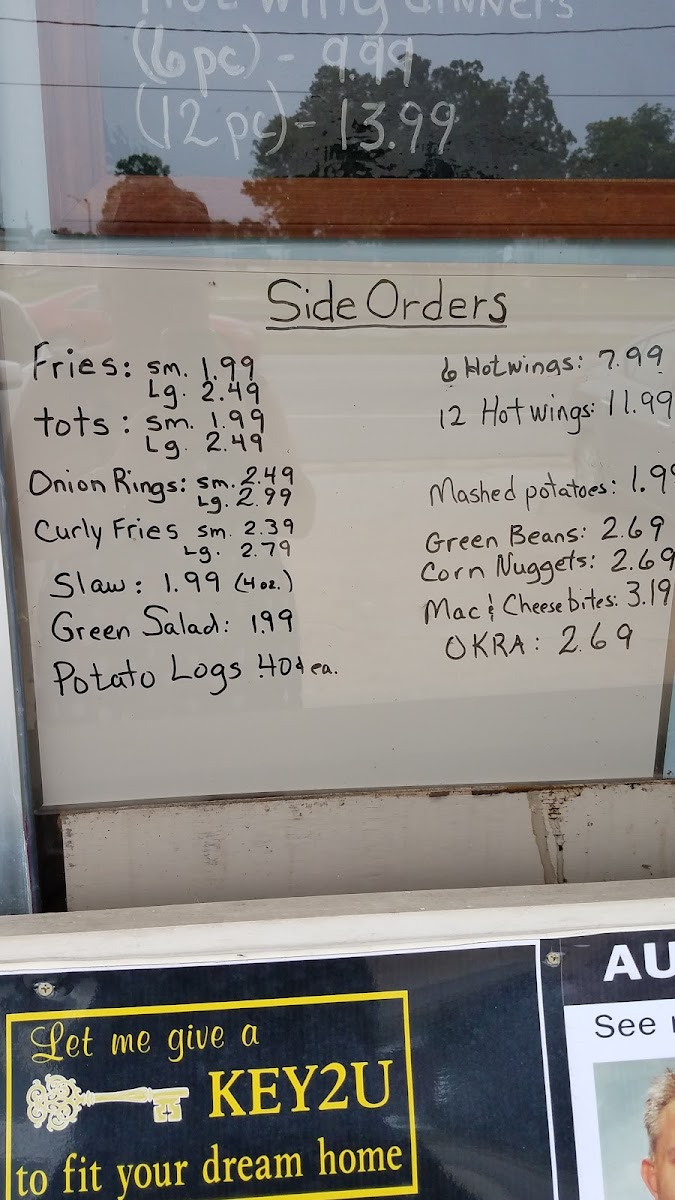 Hot wing dinners
(6pc) - 9.99
(12pc) - 13.99
Side Orders
Fries: sm. 1.99
Lg. 2.49
tots: sm. 1.99
Lg. 2.49
Onion Rings: sm. 2.49
Lg. 2.99
Curly Fries sm. 2.39
Lg. 2.79
Slaw: 1.99 (4oz.)
Green Salad: 1.99
Potato Logs .40¢ ea.
6 Hotwings: 7.99
12 Hot wings: 11.99
Mashed potatoes: 1.99
Green Beans: 2.69
Corn Nuggets: 2.69
Mac & Cheese bites: 3.19
OKRA: 2.69
Let me give a
KEY2U
to fit your dream home
AU
See